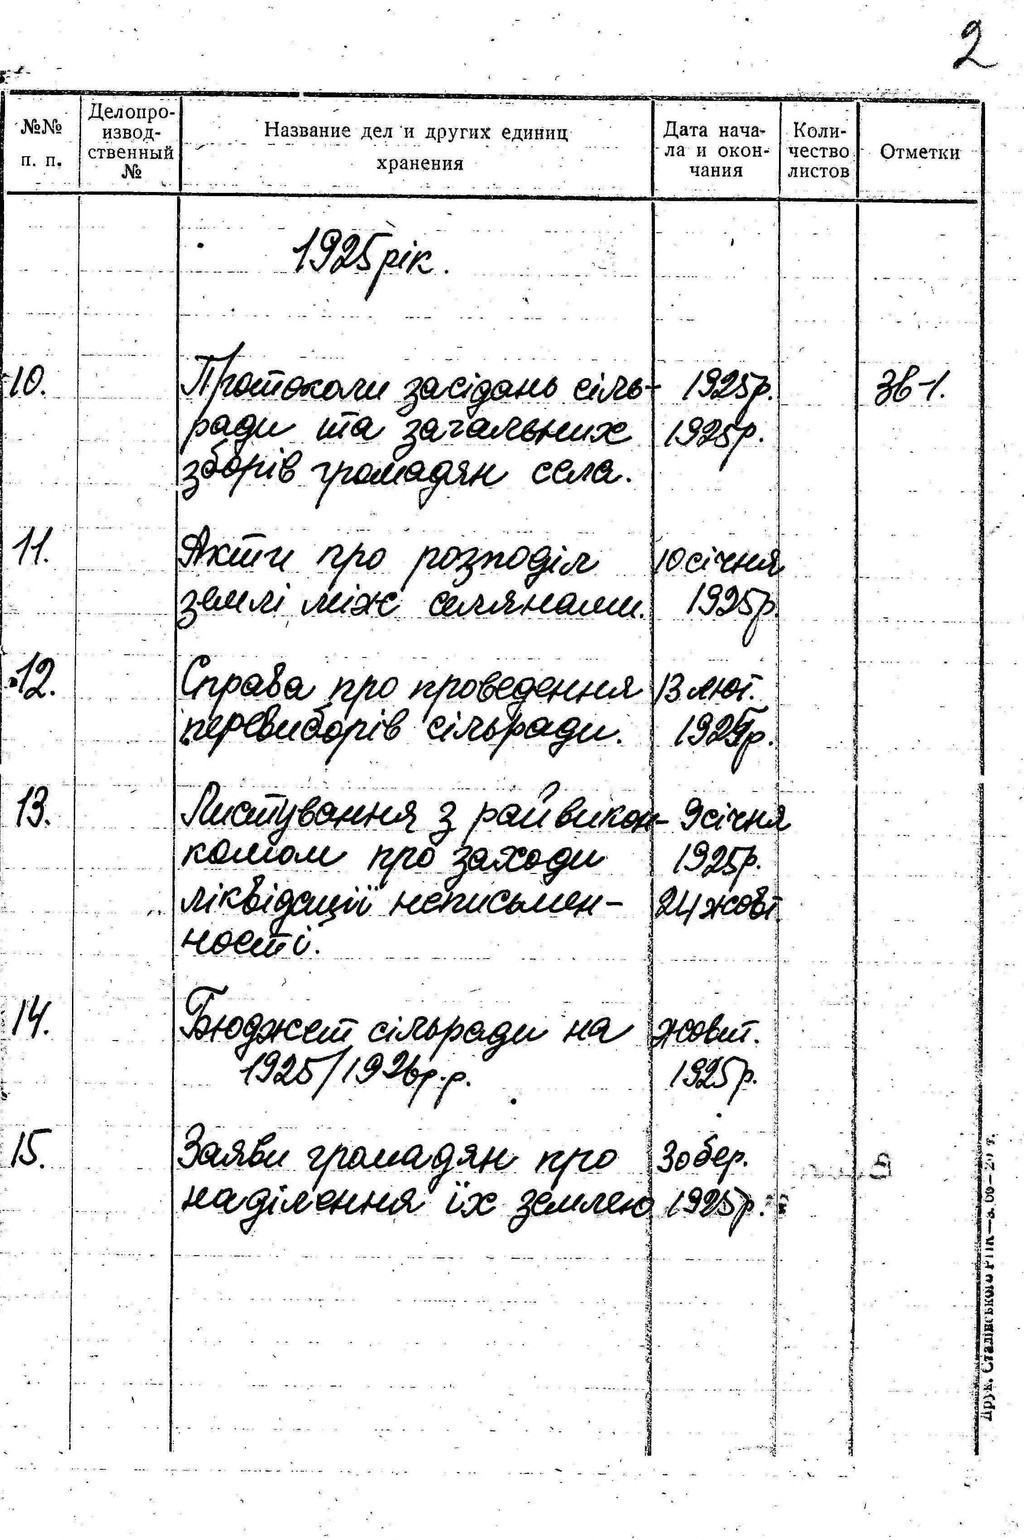 2
№№ п. п.
Делопроизвод-ственный №
Название дел и других единиц хранения
Дата начала и окончания
Количество листов
Отметки
1925 рік.
10. Протоколи засідань сіль- 1925р. Зв-1.
ради та загальних 1925р.
зборів громадян села.
11. Акти про розподіл 10 січня
землі між селянами. 1925р.
12. Справа про проведення 13 лют.
перевиборів сільради. 1925р.
13. Листування з райвикон- 9 січня
комом про заходи 1925р.
ліквідації неписьмен- 24 жовт
ності.
14. Бюджет сільради на жовт.
1925/1926р.р. 1925р.
15. Заяви громадян про 30 бер.
наділення їх землею 1925р.
Друк. Сталінського РПК